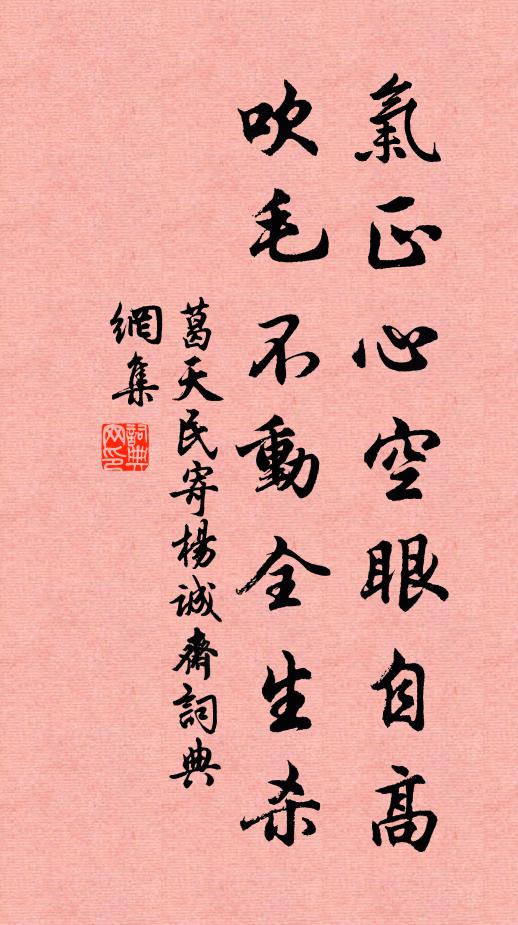 氣正心空眼自高
吹毛不動全生杀
葛天民寄楊誠齋詞典
網集
詞典網印